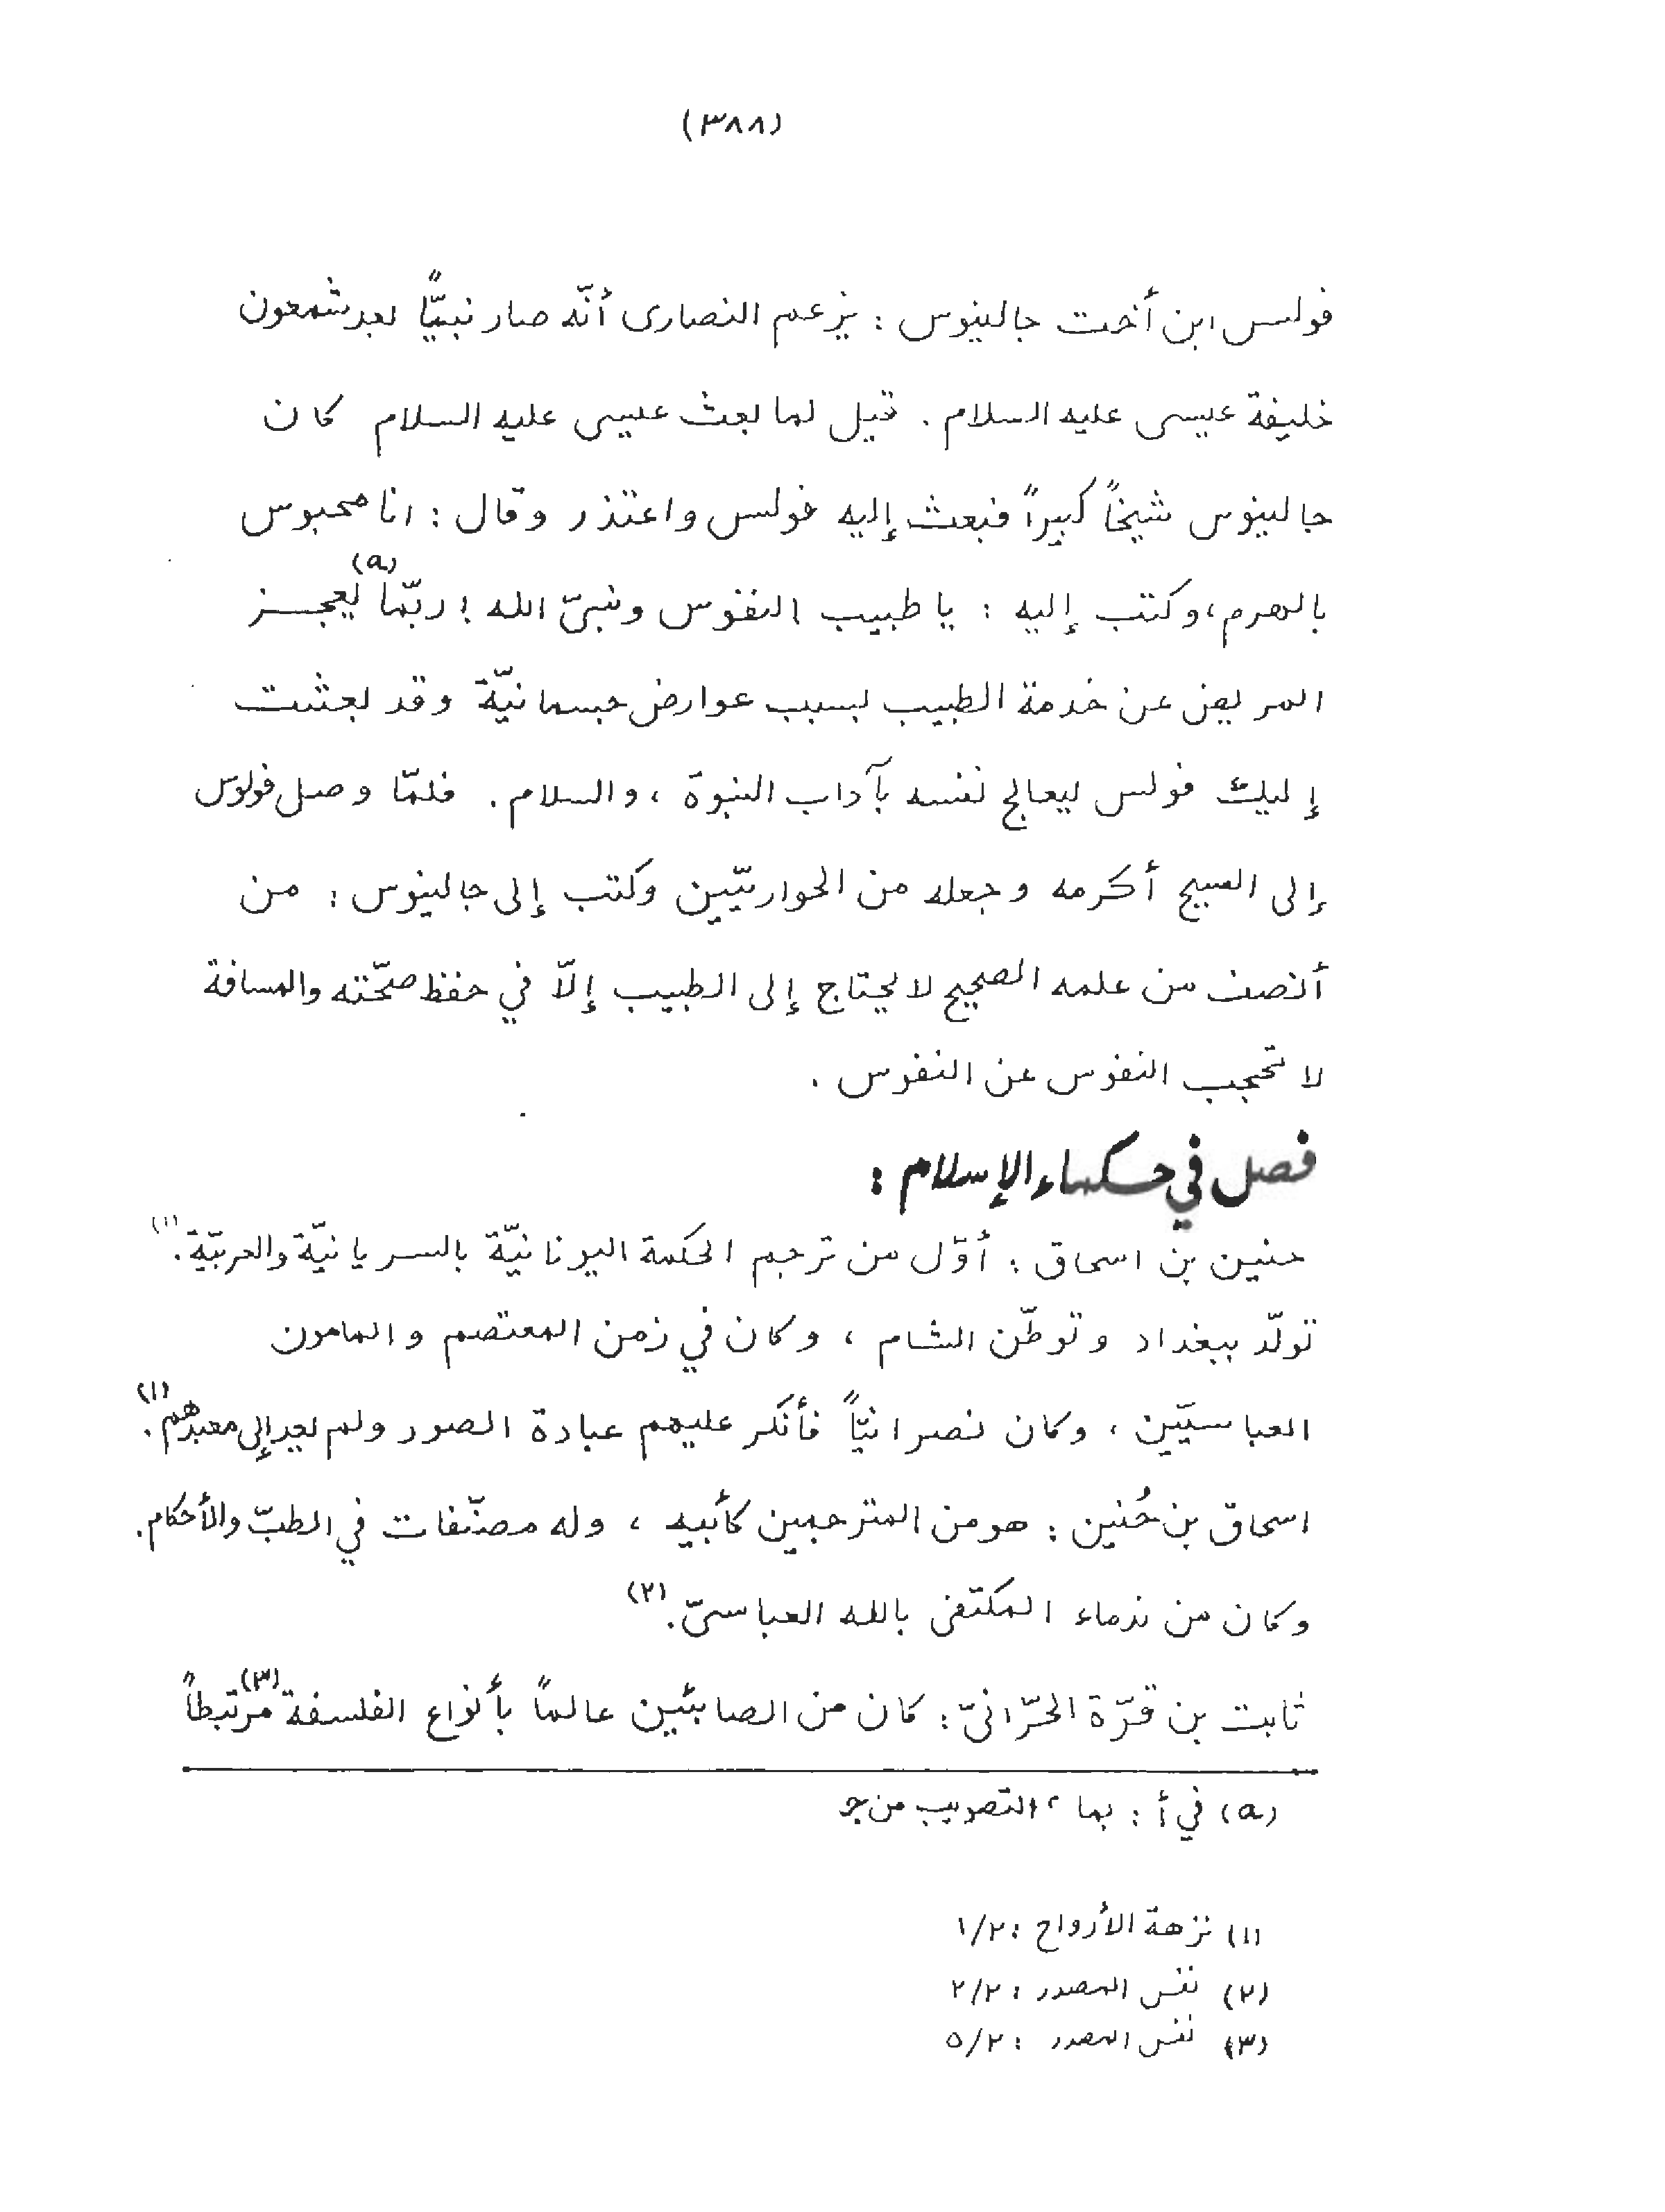 (٣٨٨)
فولس ابن أخت جالينوس : يزعم النصارى أنّه صار نبيّاً بعد شمعون
خليفة عيسى عليه السلام . قيل لما بعث عيسى عليه السلام كان
جالينوس شيخاً كبيراً فبعث إليه فولس واعتذر وقال : انا محبوس
بالهرم ، وكتب إليه : يا طبيب النفوس ونبيّ الله ! ربّما (a) يعجز
المريض عن خدمة الطبيب بسبب عوارض جسمانيّة وقد بعثت
إليك فولس ليعالج نفسه بآداب النبوة ، والسلام . فلمّا وصل فولوس
إلى المسيح أكرمه وجعله من الحواريّين وكتب إلى جالينوس : من
أنصف من علمه الصحيح لا يحتاج إلى الطبيب إلّا في حفظ صحّته والمسافة
لا تحجب النفوس عن النفوس .
فصل في حكماء الإسلام :
حنين بن اسحاق : أوّل من ترجم الحكمة اليونانيّة بالسريانيّة والعربيّة . (١)
تولّد ببغداد وتوطّن الشام ، وكان في زمن المعتصم والمامون
العباسيّين ، وكان نصرانيّاً فأنكر عليهم عبادة الصور ولم يعد إلى معبدهم . (١)
اسحاق بن حُنين : هو من المترجمين كأبيه ، وله مصنّفات في الطبّ والأحكام .
وكان من ندماء المكتفى بالله العباسيّ . (٢)
ثابت بن قرّة الحرّانيّ : كان من الصابئين عالماً بأنواع الفلسفة (٣) مرتبطاً
(a) في أ : بها ، التصويب من جـ
(١) نزهة الأرواح : ١/٢
(٢) نفس المصدر : ٢/٢
(٣) نفس المصدر : ٥/٢